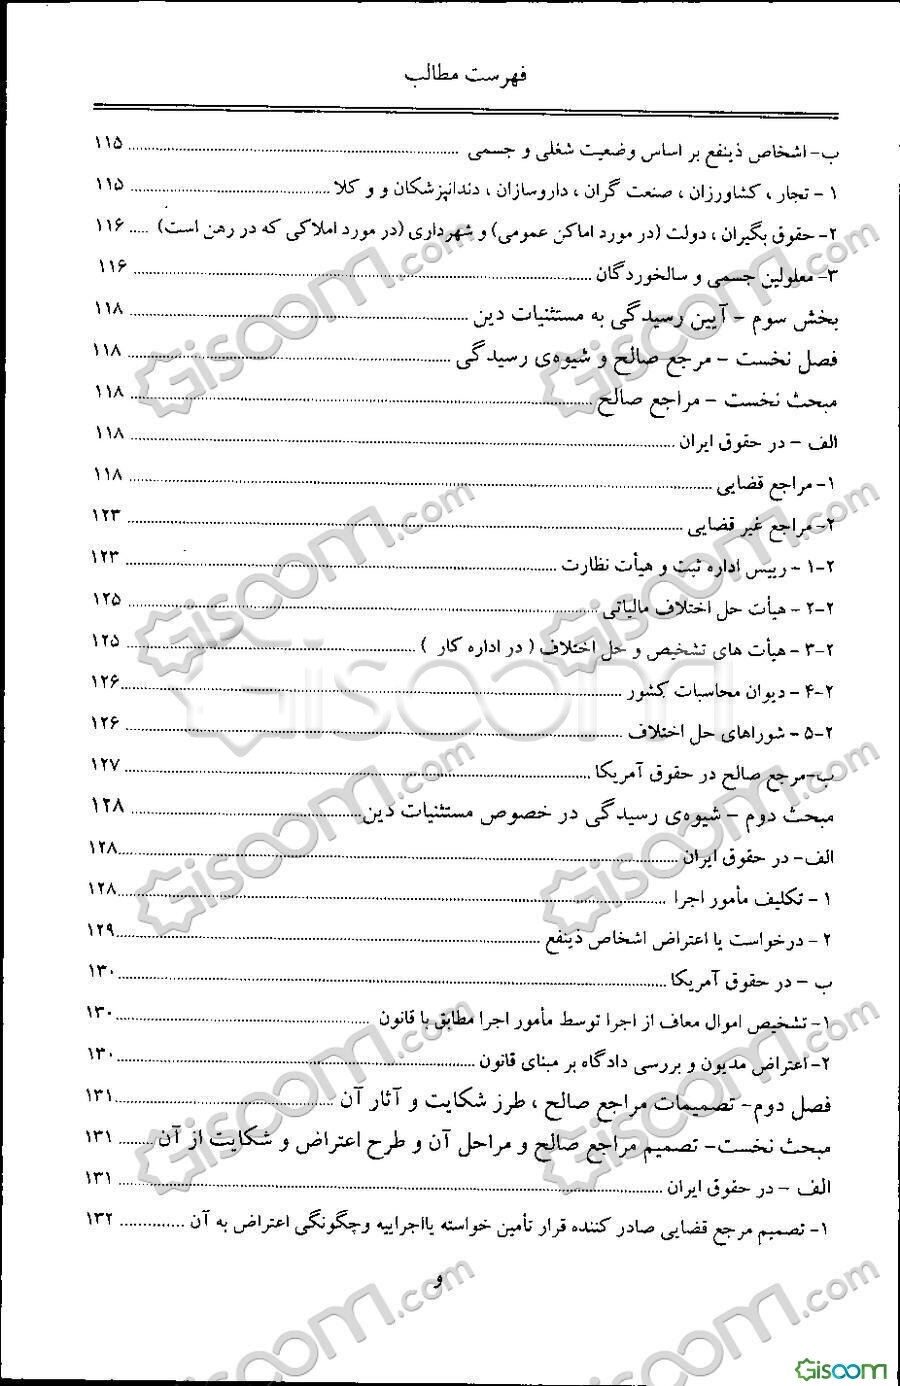 فهرست مطالب
ب- اشخاص ذینفع بر اساس وضعیت شغلی و جسمی ........ ۱۱۵
۱ - تجار ، کشاورزان ، صنعت گران ، داروسازان ، دندانپزشکان و و کلا ........ ۱۱۵
۲- حقوق بگیران ، دولت (در مورد اماکن عمومی) و شهرداری (در مورد املاکی که در رهن است) ..... ۱۱۶
۳- معلولین جسمی و سالخوردگان ........ ۱۱۶
بخش سوم - آیین رسیدگی به مستثنیات دین ........ ۱۱۸
فصل نخست - مرجع صالح و شیوه‌ی رسیدگی ........ ۱۱۸
مبحث نخست - مراجع صالح ........ ۱۱۸
الف - در حقوق ایران ........ ۱۱۸
۱- مراجع قضایی ........ ۱۱۸
۲- مراجع غیر قضایی ........ ۱۲۳
۲-۱ - رییس اداره ثبت و هیأت نظارت ........ ۱۲۳
۲-۲ - هیأت حل اختلاف مالیاتی ........ ۱۲۵
۲-۳ - هیأت های تشخیص و حل اختلاف ( در اداره کار ) ........ ۱۲۵
۲-۴ - دیوان محاسبات کشور ........ ۱۲۶
۲-۵ - شوراهای حل اختلاف ........ ۱۲۶
ب-مرجع صالح در حقوق آمریکا ........ ۱۲۷
مبحث دوم - شیوه‌ی رسیدگی در خصوص مستثنیات دین ........ ۱۲۸
الف- در حقوق ایران ........ ۱۲۸
۱ - تکلیف مأمور اجرا ........ ۱۲۸
۲ - درخواست یا اعتراض اشخاص ذینفع ........ ۱۲۹
ب - در حقوق آمریکا ........ ۱۳۰
۱- تشخیص اموال معاف از اجرا توسط مأمور اجرا مطابق با قانون ........ ۱۳۰
۲- اعتراض مدیون و بررسی دادگاه بر مبنای قانون ........ ۱۳۰
فصل دوم- تصمیمات مراجع صالح ، طرز شکایت و آثار آن ........ ۱۳۱
مبحث نخست- تصمیم مراجع صالح و مراحل آن و طرح اعتراض و شکایت از آن ........ ۱۳۱
الف - در حقوق ایران ........ ۱۳۱
۱- تصمیم مرجع قضایی صادر کننده قرار تأمین خواسته یااجراییه وچگونگی اعتراض به آن ........ ۱۳۲
و
Gisoom
Gisoom.com